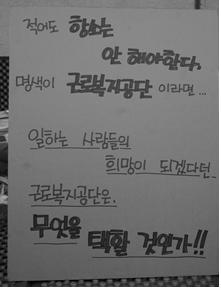 적어도 항소는
안 해야한다,
명색이 근로복지공단 이라면...
일하는 사람들의
희망이 되겠다던.
근로복지공단은.
무엇을 택할 것인가!!